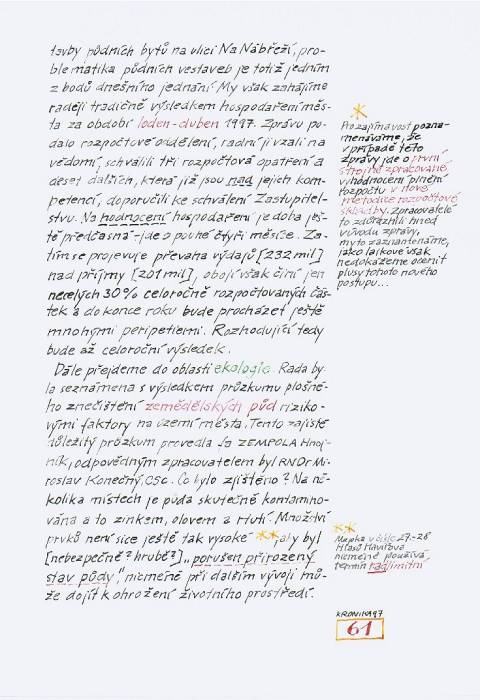 tavby půdních bytů na ulici Na Nábřeží, pro-
blematika půdních vestaveb je totiž jedním
z bodů dnešního jednání My však zahájíme
raději tradičně výsledkem hospodaření měs-
ta za období leden-duben 1997. Zprávu po-
dalo rozpočtové oddělení, radní ji vzali na
vědomí, schválili tři rozpočtová opatření a
deset dalších, která již jsou nad jejich kom-
petenci, doporučili ke schválení Zastupitel-
stvu. Na hodnocení hospodaření je doba ješ-
tě předčasná - jde o pouhé čtyři měsíce. Za-
tím se projevuje převaha výdajů [232 mil]
nad příjmy [201 mil], obojí však činí jen
necelých 30% celoročně rozpočtovaných čás-
tek a do konce roku bude procházet ještě
mnohými peripetiemi. Rozhodující tedy
bude až celoroční výsledek.
Dále přejdeme do oblasti ekologie. Rada by-
la seznámena s výsledkem průzkumu plošné-
ho znečištění zemědělských půd riziko-
vými faktory na území města. Tento zajisté
důležitý průzkum provedla fa ZEMPOLA Hnoj-
ník, odpovědným zpracovatelem byl RNDr Mi-
roslav Konečný, CSc. Co bylo zjištěno? Na ně-
kolika místech je půda skutečně kontamino-
vána a to zinkem, olovem a rtutí. Množství
prvků není sice ještě tak vysoké **, aby byl
[nebezpečně? hrubě?] „porušen přirozený
stav půdy", nicméně při dalším vývoji mů-
že dojít k ohrožení životního prostředí.
*
Pro zajímavost pozna-
menáváme, že
v případě této
zprávy jde o první
strojně zpracované
vyhodnocení plnění
rozpočtu v nové
metodice rozpočtové
skladby. Zpracovatelé
to zdůraznili hned
v úvodu zprávy,
my to zaznamenáme,
jako laikové však
nedokážeme ocenit
plusy tohoto nového
postupu...
**
Mapka v čísle 27-28
Hlasů Havířova
nicméně používá
termín nadlimitní
KRONIKA 97
61